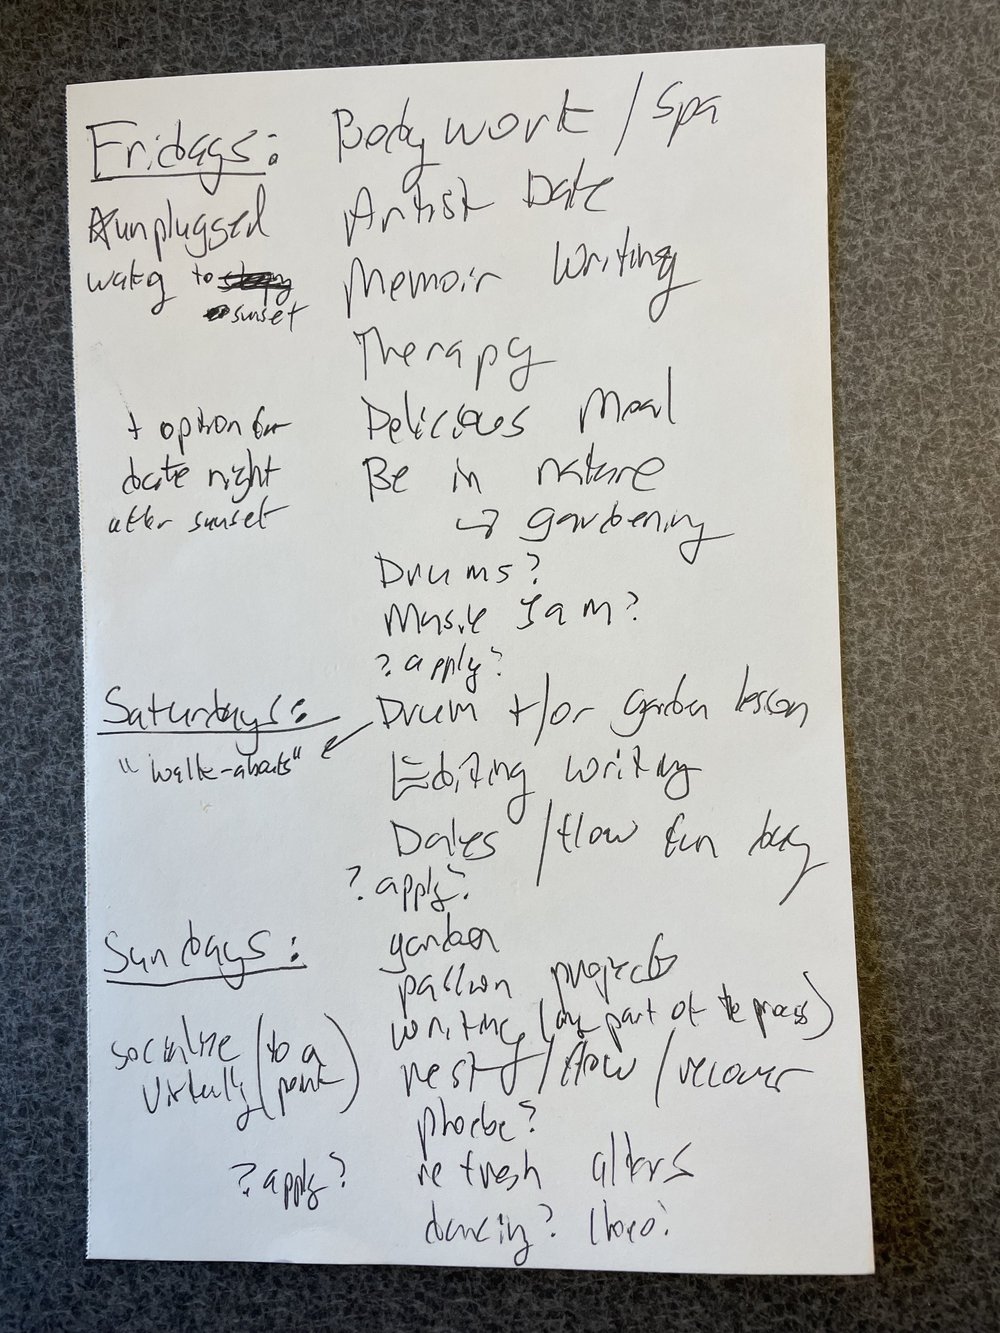 Fridays: Bodywork / Spa
☆unplugged Artist Date
waking to sunset Memoir Writing
Therapy
+ option for Delicious Meal
date night Be in nature
after sunset ↳ gardening
Drums?
Music Jam?
? apply?
Saturdays: Drum +/or garden lesson
"walk-abouts"
Editing writing
Dates / flow fun
? apply?
Sundays: garden
passion projects
writing (any part of the process)
socialize (to a rest / flow / recover
virtually point)
phoebe?
? apply? refresh alters
dancing?